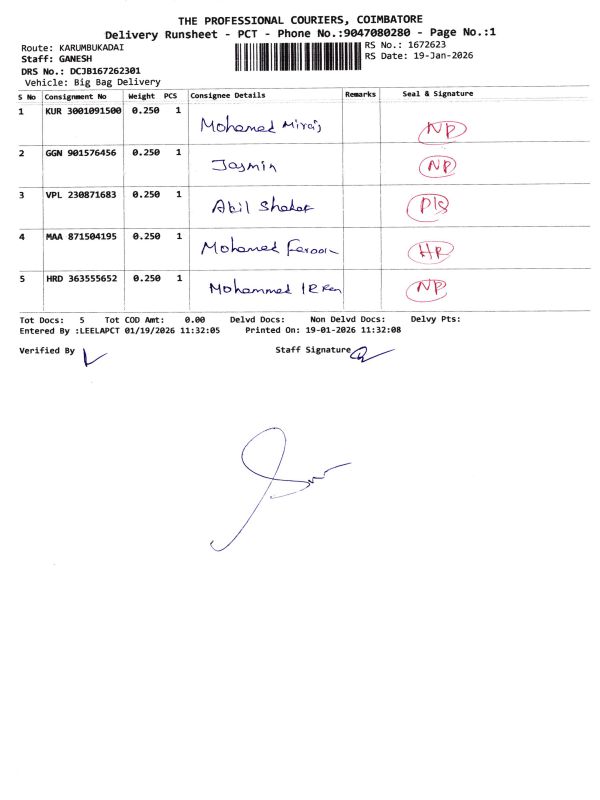 THE PROFESSIONAL COURIERS, COIMBATORE
Delivery Runsheet - PCT - Phone No.:9047080280 - Page No.:1
Route: KARUMBUKADAI RS No.: 1672623
Staff: GANESH RS Date: 19-Jan-2026
DRS No.: DCJB167262301
Vehicle: Big Bag Delivery
S No Consignment No Weight PCS Consignee Details Remarks Seal & Signature
1 KUR 3001091500 0.250 1 Mohamed Miraj NP
2 GGN 901576456 0.250 1 Jasmin NP
3 VPL 230871683 0.250 1 Abil
4 MAA 871504195 0.250 1 Mohamed Farook HR
5 HRD 363555652 0.250 1 Mohammed NP
Tot Docs: 5 Tot COD Amt: 0.00 Delvd Docs: Non Delvd Docs: Delvy Pts:
Entered By :LEELAPCT 01/19/2026 11:32:05 Printed On: 19-01-2026 11:32:08
Verified By Staff Signature